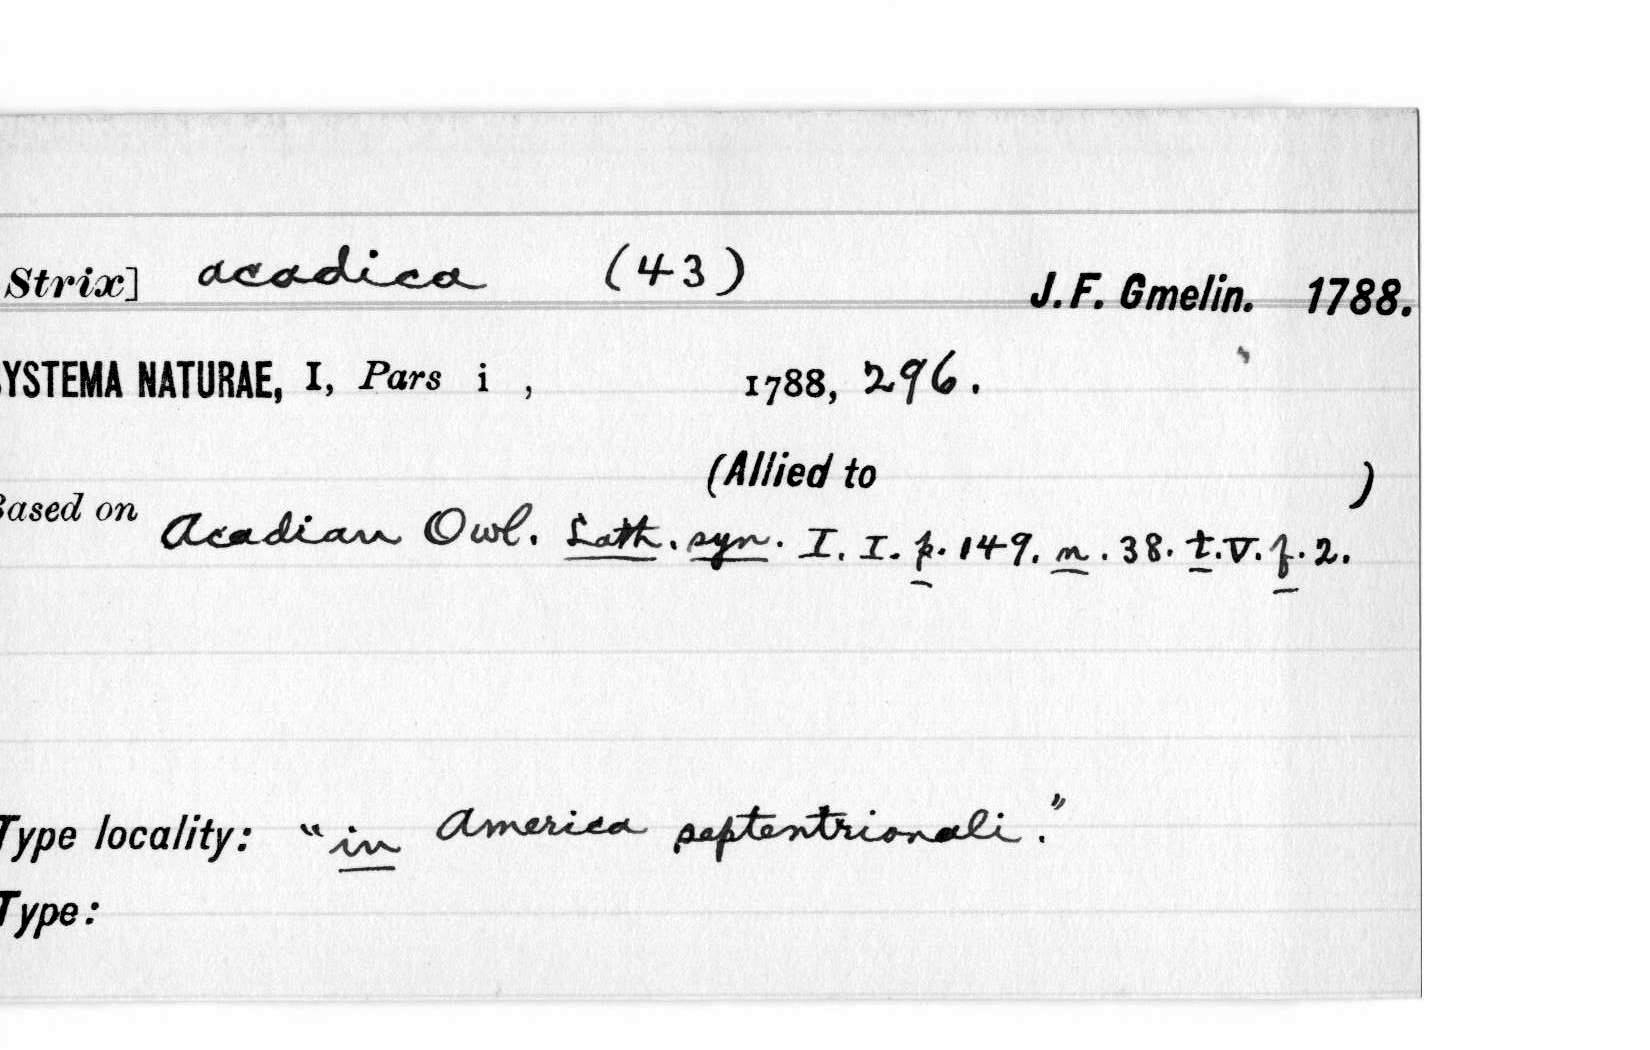 Strix] acadica (43) J. F. Gmelin. 1788.
YSTEMA NATURAE, I, Pars i , 1788, 296.
(Allied to )
Based on Acadian Owl. Lath. syn. I. I. p. 149. n. 38. t. V. f. 2.
Type locality: "in America septentrionali."
Type: